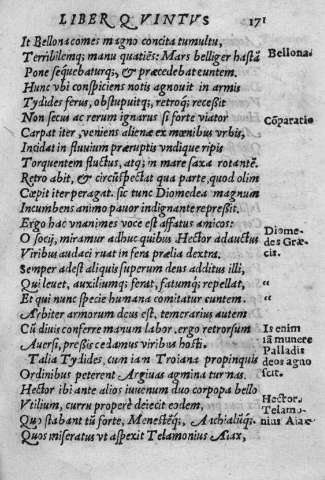 LIBER QVINTVS 171
It Bellona comes magno concita tumultu,
Terribilemq; manu quatiẽs: Mars belliger hastã
Bellona.
Pone seq̃uebaturq;, & præcedebat euntem.
Hunc vbi conspiciens notis agnouit in armis
Tydides ferus, obstupuitq;, retroq; recessit
Non secus ac rerum ignarus si forte viator
Cõparatio
Carpat iter, veniens alienæ ex mœnibus vrbis,
Incidat in fluuium præruptis vndique ripis
Torquentem fluctus, atq; in mare saxa rotantẽ.
Retro abit, & circũspectat qua parte, quod olim
Cœpit iter peragat. sic tunc Diomedea magnum
Incumbens animo pauor indignante repressit.
Ergo hac vnanimes voce est affatus amicos:
O socij, miramur adhuc quibus Hector adauctus
Diome-
Viribus audaci ruat in fera prælia dextra.
des Græ-
cis.
Semper adest aliquis superum deus additus illi,
Qui leuet, auxiliumq; ferat, fatumq; repellat,
“
Et qui nunc specie humana comitatur euntem.
“
Arbiter armorum deus est, temerarius autem
Cũ diuis conferre manum labor. ergo retrorsum
Is enim
Auersi, pressis cedamus viribus hosti.
iã munere
Palladis
Talia Tydides, cum ian Troiana propinquis
deos agno
Ordinibus peterent Argiuas agmina turnas.
scit.
Hector ibi ante alios iuuenum duo corpopa bello
Vtilium, curru properè deiecit eodem,
Hector.
Quo stabant tũ forte, Menesteq;, Anchialũq;.
Telamo-
nius Aiax
Quos miseratus vt aspexit Telamonius Aiax,